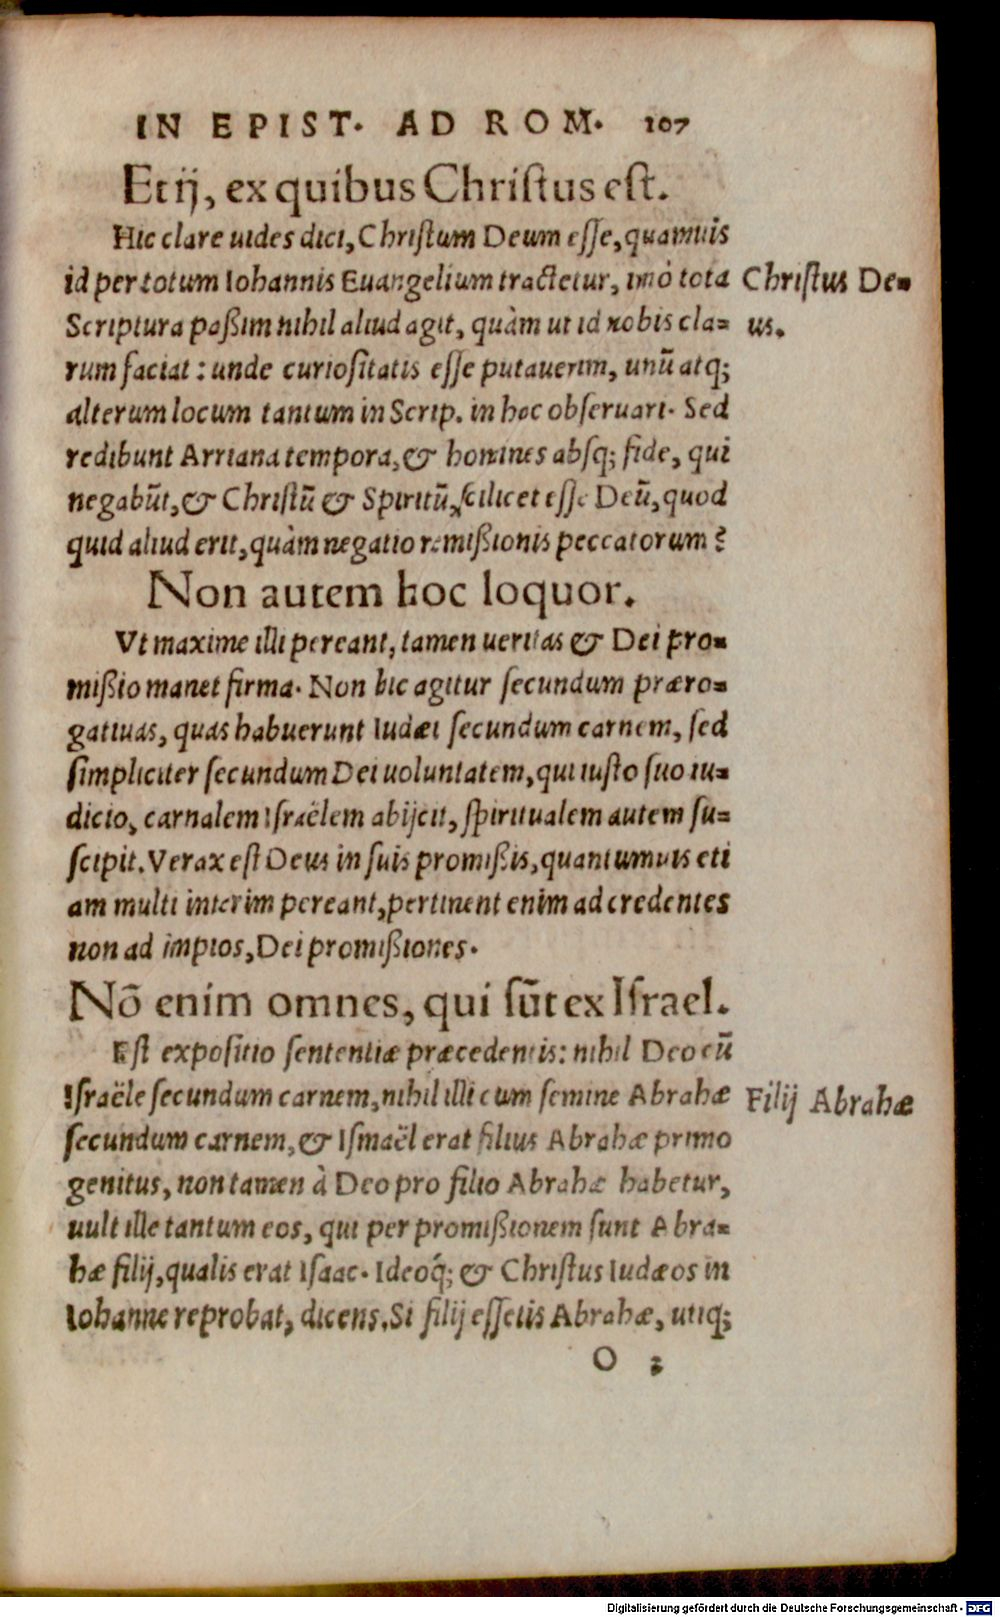 IN EPIST. AD ROM. 107
Et ij, ex quibus Chriſtus eſt.
Hic clare uides dici, Chriſtum Deum eſſe, quamuis
id per totum Iohannis Euangelium tractetur, imò tota
Christus De-
Scriptura paßim nihil aliud agit, quàm ut id nobis cla=
us.
rum faciat: unde curioſitatis eſſe putauerim, unū atq;
alterum locum tantum in Scrip. in hoc obſeruari. Sed
redibunt Arriana tempora, & homines abſq; fide, qui
negabūt, & Chriſtū & Spiritū, ſcilicet eſſe Deū, quod
quid aliud erit, quàm negatio remißionis peccatorum?
Non autem hoc loquor.
Vt maxime illi pereant, tamen ueritas & Dei pro-
mißio manet firma. Non hic agitur ſecundum præro-
gatiuas, quas habuerunt Iudæi ſecundum carnem, ſed
ſimpliciter ſecundum Dei uoluntatem, qui iuſto ſuo iu-
dicio, carnalem Iſraëlem abijcit, ſpiritualem autem ſu=
ſcipit. Verax eſt Deus in ſuis promißis, quantumuis eti
am multi interim pereant, pertinent enim ad credentes
non ad impios, Dei promißiones.
Nō enim omnes, qui ſūt ex Iſrael.
Eſt expoſitio ſententiæ præcedentis: nihil Deo cū
Iſraële ſecundum carnem, nihil illi cum ſemine Abrahæ
Filij Abrahæ
ſecundum carnem, & Iſmaël erat filius Abrahæ primo
genitus, non tamen à Deo pro filio Abrahæ habetur,
uult ille tantum eos, qui per promißionem ſunt Abra-
hæ filij, qualis erat Iſaac. Ideoq́; & Chriſtus Iudæos in
Iohanne reprobat, dicens. Si filij eſſetis Abrahæ, utiq;
O 3
Digitalisierung gefördert durch die Deutsche Forschungsgemeinschaft - DFG